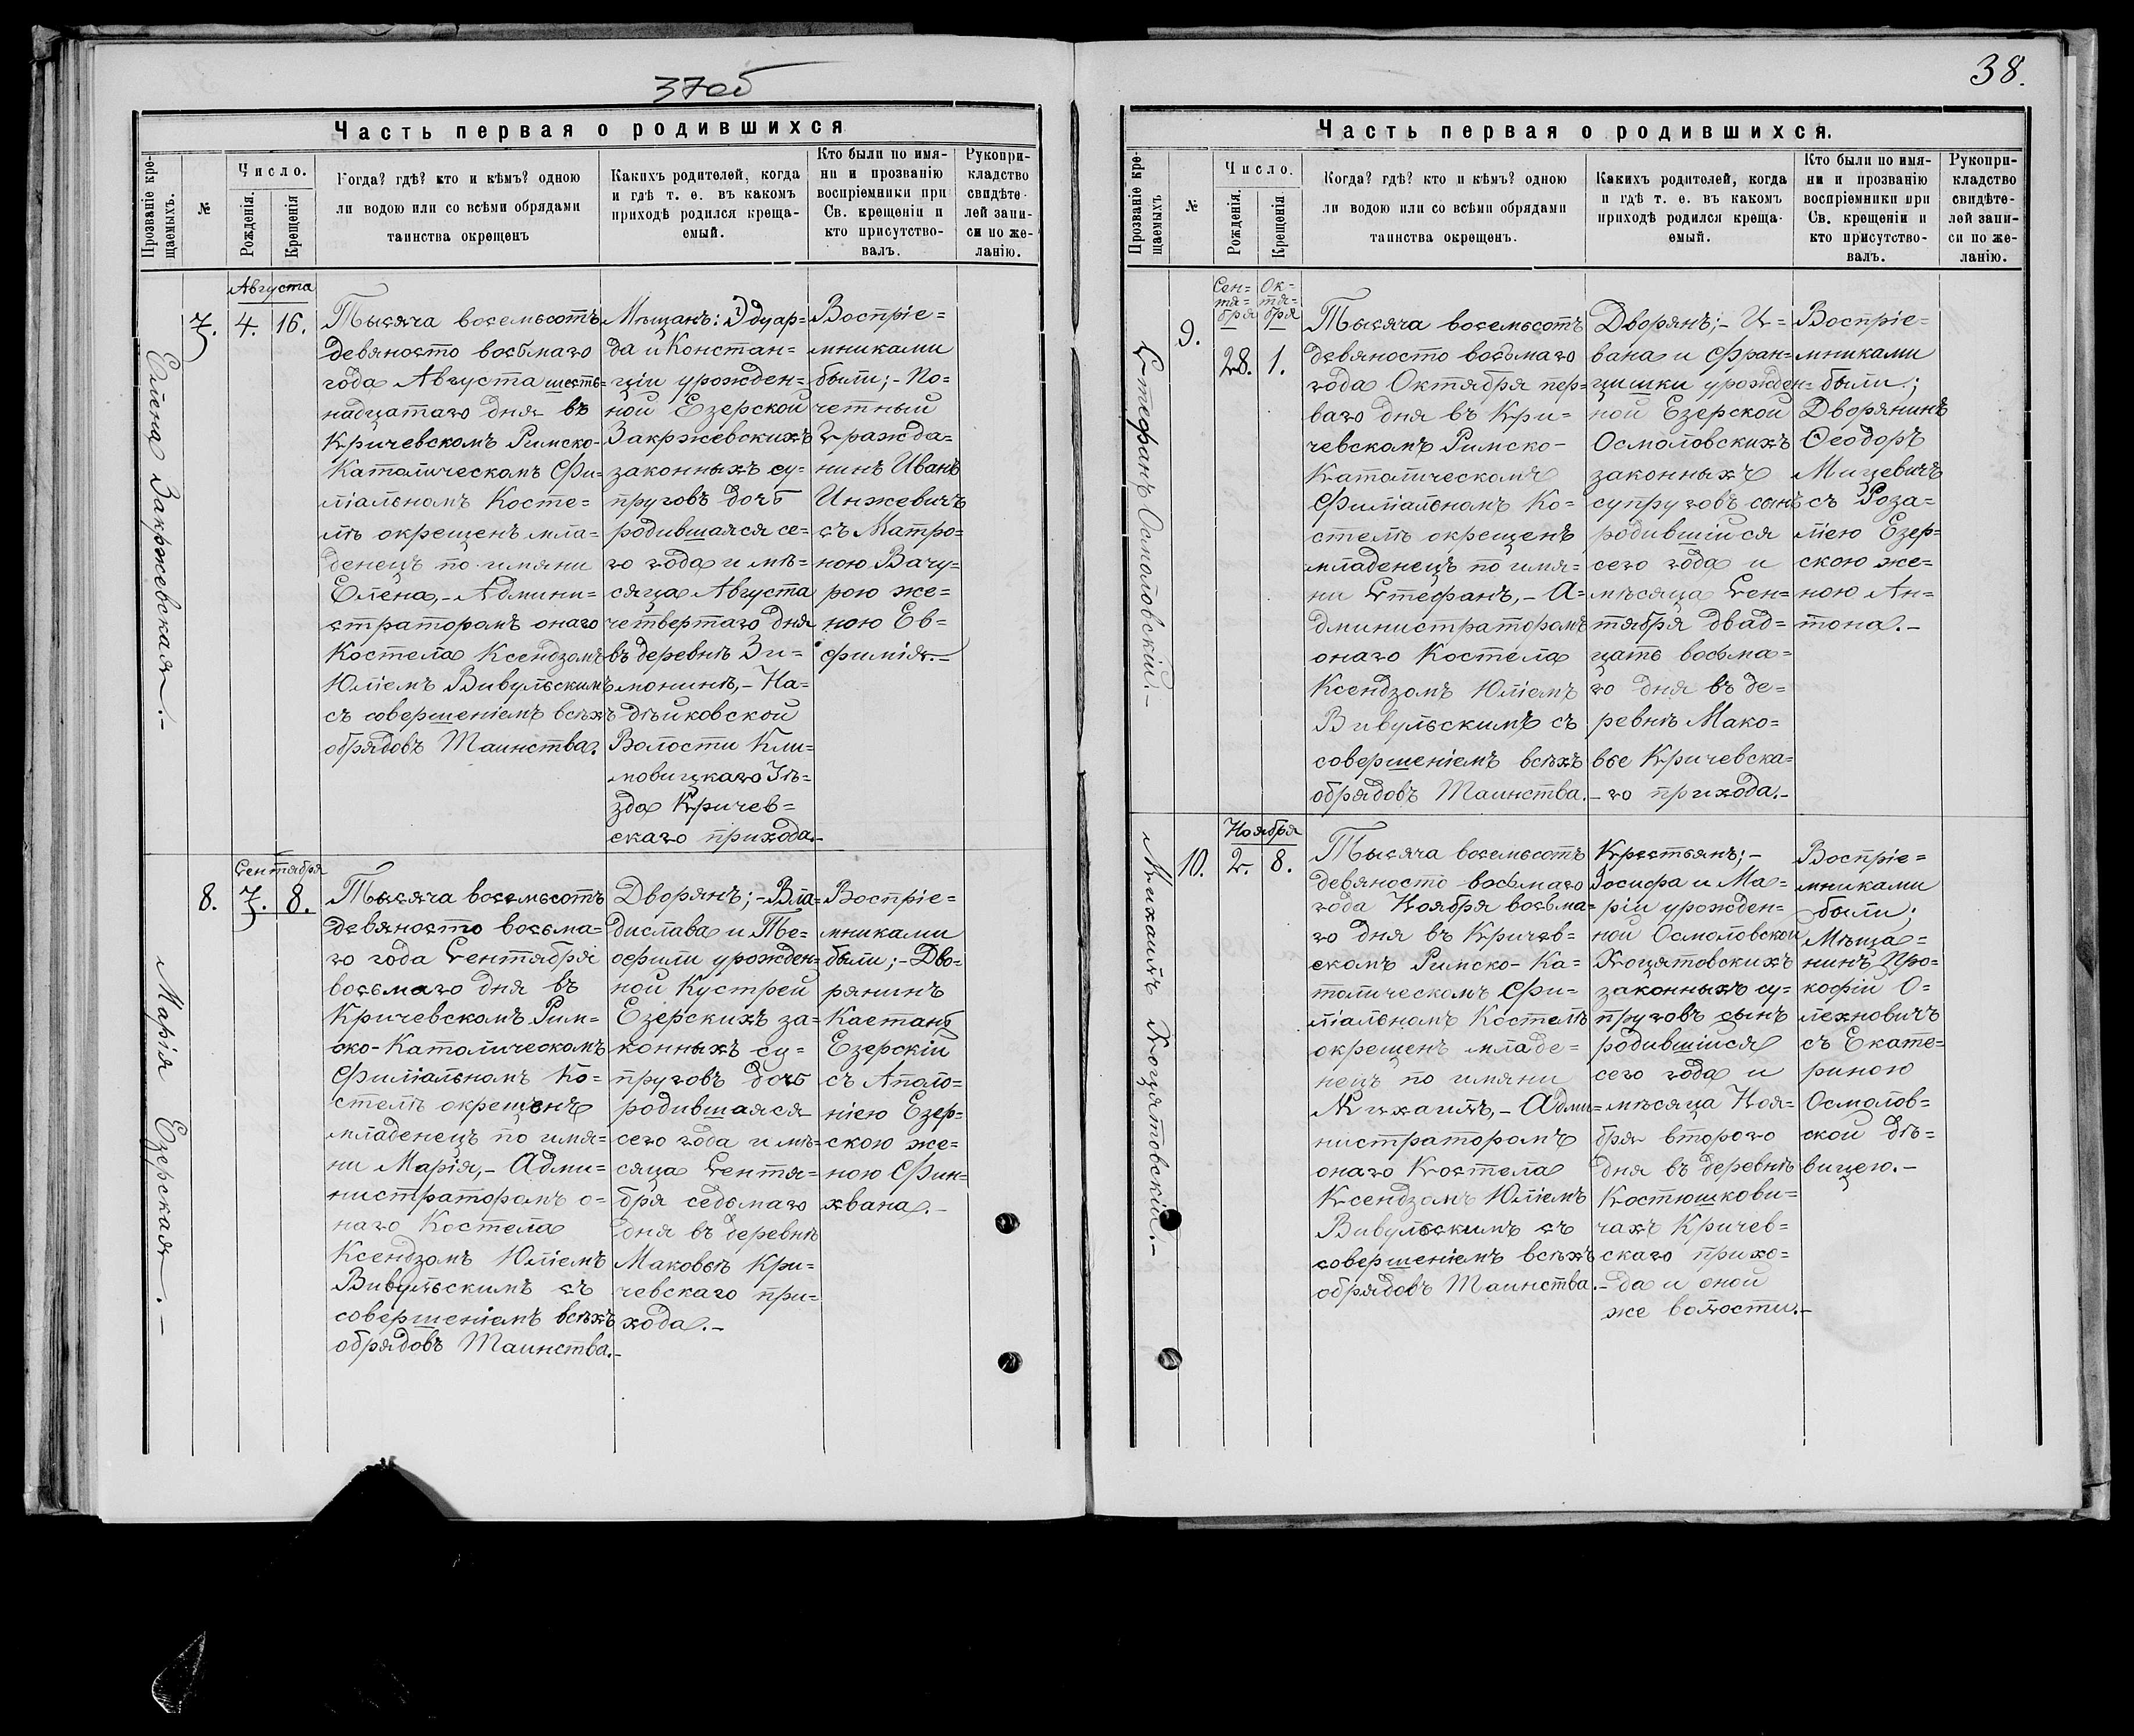 37об
Часть первая о родившихся
Прозваніе кре-
щаемыхъ.
№
Число.
Рожденія.
Крещенія
Когда? гдѣ? кто и кѣмъ? одною
ли водою или со всѣми обрядами
таинства окрещенъ
Какихъ родителей, когда
и гдѣ т. е. въ какомъ
приходѣ родился креща-
емый.
Кто были по имя-
ни и прозванію
воспріемники при
Св. крещеніи и
кто присутство-
валъ.
Рукопри-
кладство
свидѣте-
лей запи-
си по же-
ланію.
Елена Закржевская.-
7.
Августа
4.
16.
Тысяча восемьсотъ
девяносто восьмаго
года Августа шест=
надцатаго дня въ
Кричевскомъ Римско-
Католическомъ Фи=
ліальномъ Косте=
лѣ окрещенъ мла=
денецъ по имяни
Елена,- Админи=
страторомъ онаго
Костела Ксендзомъ
Юліемъ Вивульскимъ
съ совершеніемъ всѣхъ
обрядовъ Таинства.
Мѣщанъ: Эдуар=
да и Констан=
ціи урожден=
ной Езерской
Закржевскихъ
законныхъ су=
пруговъ дочь
родившаяся се=
го года и мѣ=
сяца Августа
четвертаго дня
въ деревнѣ Зи=
монинѣ,- На=
дѣйковской
Волости Кли=
мовицкаго Уѣ=
зда Кричев=
скаго прихода.-
Воспріе=
мниками
были;- По=
четный
Гражда=
нинъ Иванъ
Инжевичъ
съ Матро=
ною Вачу=
рою же=
ною Ев=
фимія.-
Марія Езерская.-
8.
Сентября
7.
8.
Тысяча восемьсотъ
девяносто восьма=
го года Сентября
восьмаго дня въ
Кричевскомъ Рим=
ско-Католическомъ
Филіальномъ Ко=
стелѣ окрещенъ
младенецъ по имя=
ни Марія,- Адми=
нистраторомъ о=
наго Костела
Ксендзомъ Юліемъ
Вивульскимъ съ
совершеніемъ всѣхъ
обрядовъ Таинства.-
Дворянъ;- Вла=
дислава и Те=
офили урожден=
ной Кустрей
Езерскихъ за=
конныхъ су=
пруговъ дочь
родившаяся
сего года и мѣ=
сяца Сентя=
бря седьмаго
дня въ деревнѣ
Маковьѣ Кри=
чевскаго при=
хода.-
Воспріе=
мниками
были;- Дво=
рянинъ
Каетанъ
Езерскій
съ Аполо=
ніею Езер=
скою же=
ною Фин=
хвана.-
38.
Часть первая о родившихся.
Прозваніе кре-
щаемыхъ
№
Число.
Рожденія.
Крещенія.
Когда? гдѣ? кто и кѣмъ? одною
ли водою или со всѣми обрядами
таинства окрещенъ.
Какихъ родителей, когда
и гдѣ т. е. въ какомъ
приходѣ родился креща-
емый.
Кто были по имя-
ни и прозванію
воспріемники при
Св. крещеніи и
кто присутство-
валъ.
Рукопри-
кладство
свидѣте-
лей запи-
си по же-
ланію.
Стефанъ Осмоловскій.-
9.
Сен=
тя=
бря
28.
Ок=
тя=
бря
1.
Тысяча восемьсотъ
девяносто восьмаго
года Октября пер=
ваго дня въ Кри=
чевскомъ Римско-
Католическомъ
Филіальномъ Ко=
стелѣ окрещенъ
младенецъ по имя=
ни Стефанъ,- А=
дминистраторомъ
онаго Костела
Ксендзомъ Юліемъ
Вивульскимъ съ
совершеніемъ всѣхъ
обрядовъ Таинства.-
Дворянъ;- И=
вана и Фран=
цишки урожден=
ной Езерской
Осмоловскихъ
законныхъ
супруговъ сынъ
родившійся
сего года и
мѣсяца Сен=
тября двад=
цать восьма=
го дня въ де=
ревнѣ Мако=
вье Кричевска=
го прихода.-
Воспріе=
мниками
были;
Дворянинъ
Ѳеодоръ
Мицевичъ
съ Роза=
ліею Езер=
скою же=
ною Ан=
тона.-
Михаилъ Хоцятовскій.-
10.
Ноября
2.
8.
Тысяча восемьсотъ
девяносто восьмаго
года Ноября восьма=
го дня въ Кричев=
скомъ Римско-Ка=
толическомъ Фи=
ліальномъ Костелѣ
окрещенъ младе=
нецъ по имяни
Михаилъ,- Адми=
нистраторомъ
онаго Костела
Ксендзомъ Юліемъ
Вивульскимъ съ
совершеніемъ всѣхъ
обрядовъ Таинства.-
Крестьянъ;-
Іосифа и Ма=
ріи урожден=
ной Осмоловской
Хоцятовскихъ
законныхъ су=
пруговъ сынъ
родившійся
сего года и
мѣсяца Ноя=
бря второго
дня въ деревнѣ
Костюшкови=
чахъ Кричев=
скаго прихо=
да и оной
же волости.-
Воспріе=
мниками
были;
Мѣща=
нинъ Про=
кофій О=
лехновичъ
съ Екате=
риною
Осмолов=
ской дѣ=
вицею.-